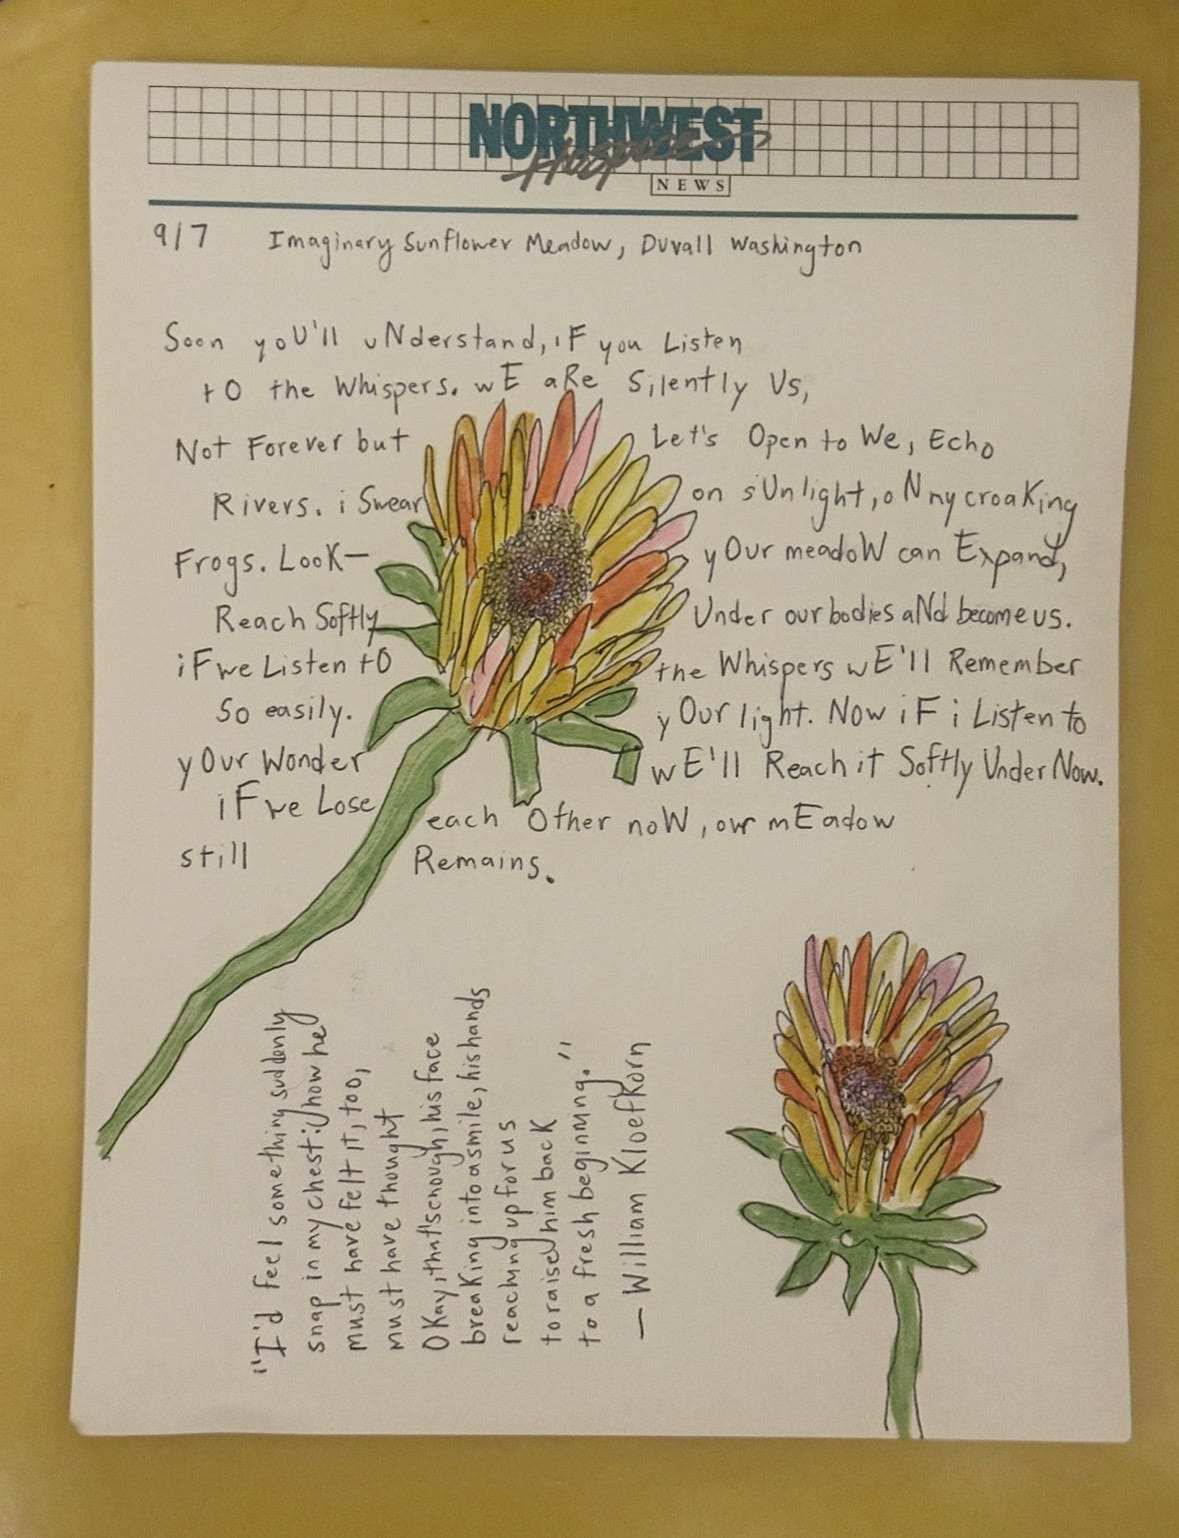 NORTHWEST
Hospice
NEWS
9/7 Imaginary Sunflower Meadow, Duvall Washington
Soon yoU'll uNderstand, iF you Listen
tO the Whispers. wE aRe Silently Us,
Not Forever but Let's Open to We, Echo
Rivers. i Swear on sUnlight, oN ny croaKing
Frogs. LooK— yOur meadoW can Expand,
Reach Softly Under our bodies aNd become us.
iF we Listen tO the Whispers wE'll Remember
So easily. yOur light. Now iF i Listen to
yOur Wonder wE'll Reach it Softly Under Now.
iF we Lose each Other noW, our mEadow
still Remains.
"I'd feel something suddenly
snap in my chest: how he
must have felt it, too,
must have thought
Okay, that's enough, his face
breaKing into a smile, his hands
reaching up for us
to raise him back
to a fresh beginning."
— William Kloefkorn